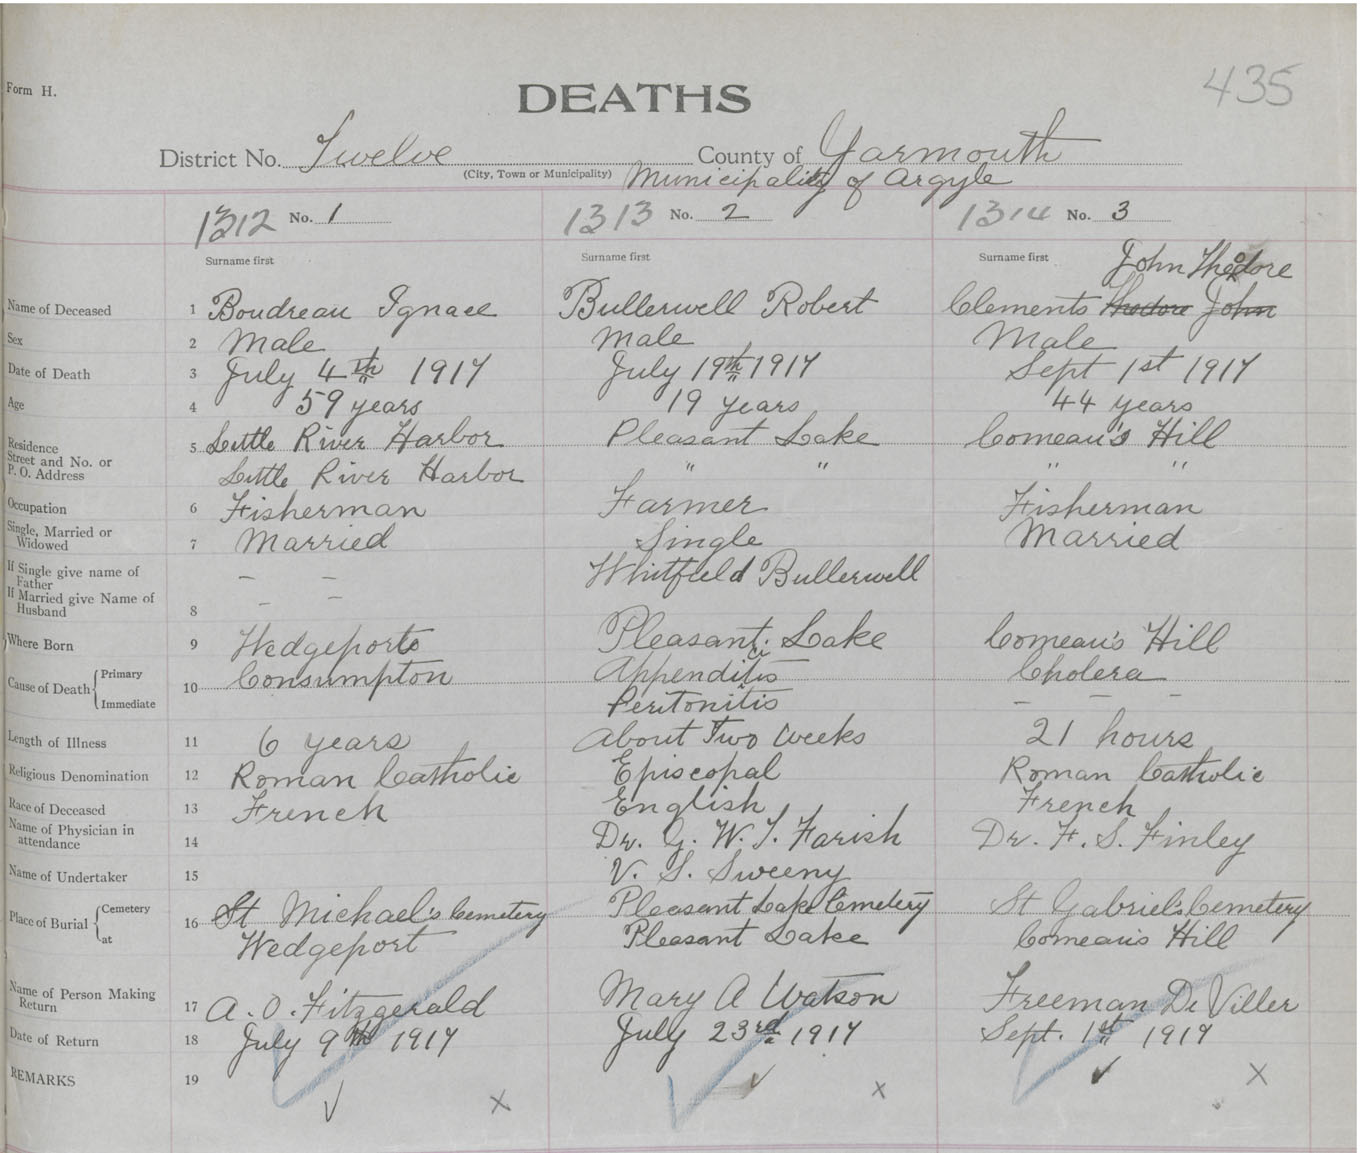 435
Form H.
DEATHS
District No. Twelve County of Yarmouth
(City, Town or Municipality) Municipality of Argyle
1312 No. 1 1313 No. 2 1314 No. 3
Surname first Surname first Surname first John Theodore
Name of Deceased 1 Boudreau Ignace Bullerwell Robert Clements Theodore John
Sex 2 Male Male Male
Date of Death 3 July 4th 1917 July 19th 1917 Sept 1st 1917
Age 4 59 years 19 years 44 years
Residence 5 Little River Harbor Pleasant Lake Comeau's Hill
Street and No. or
P. O. Address Little River Harbor " " " "
Occupation 6 Fisherman Farmer Fisherman
Single, Married or
Widowed 7 Married Single Married
If Single give name of
Father – – Whitfield Bullerwell
If Married give Name of
Husband 8 – –
Where Born 9 Wedgeport Pleasant Lake Comeau's Hill
Cause of Death { Primary 10 Consumpton Appendicitis Cholera
Immediate Peritonitis – – –
Length of Illness 11 6 years About Two weeks 21 hours
Religious Denomination 12 Roman Catholic Episcopal Roman Catholic
Race of Deceased 13 French English French
Name of Physician in
attendance 14 Dr. G. W. T. Farish Dr. F. S. Finley
Name of Undertaker 15 V. S. Sweeny
Place of Burial { Cemetery 16 St Michael's Cemetery Pleasant Lake Cemetery St Gabriel's Cemetery
at Wedgeport Pleasant Lake Comeau's Hill
Name of Person Making
Return 17 A. O. Fitzgerald Mary A Watson Freeman De Viller
Date of Return 18 July 9th 1917 July 23rd 1917 Sept. 1st 1917
REMARKS 19 ✓ x ✓ x ✓ x